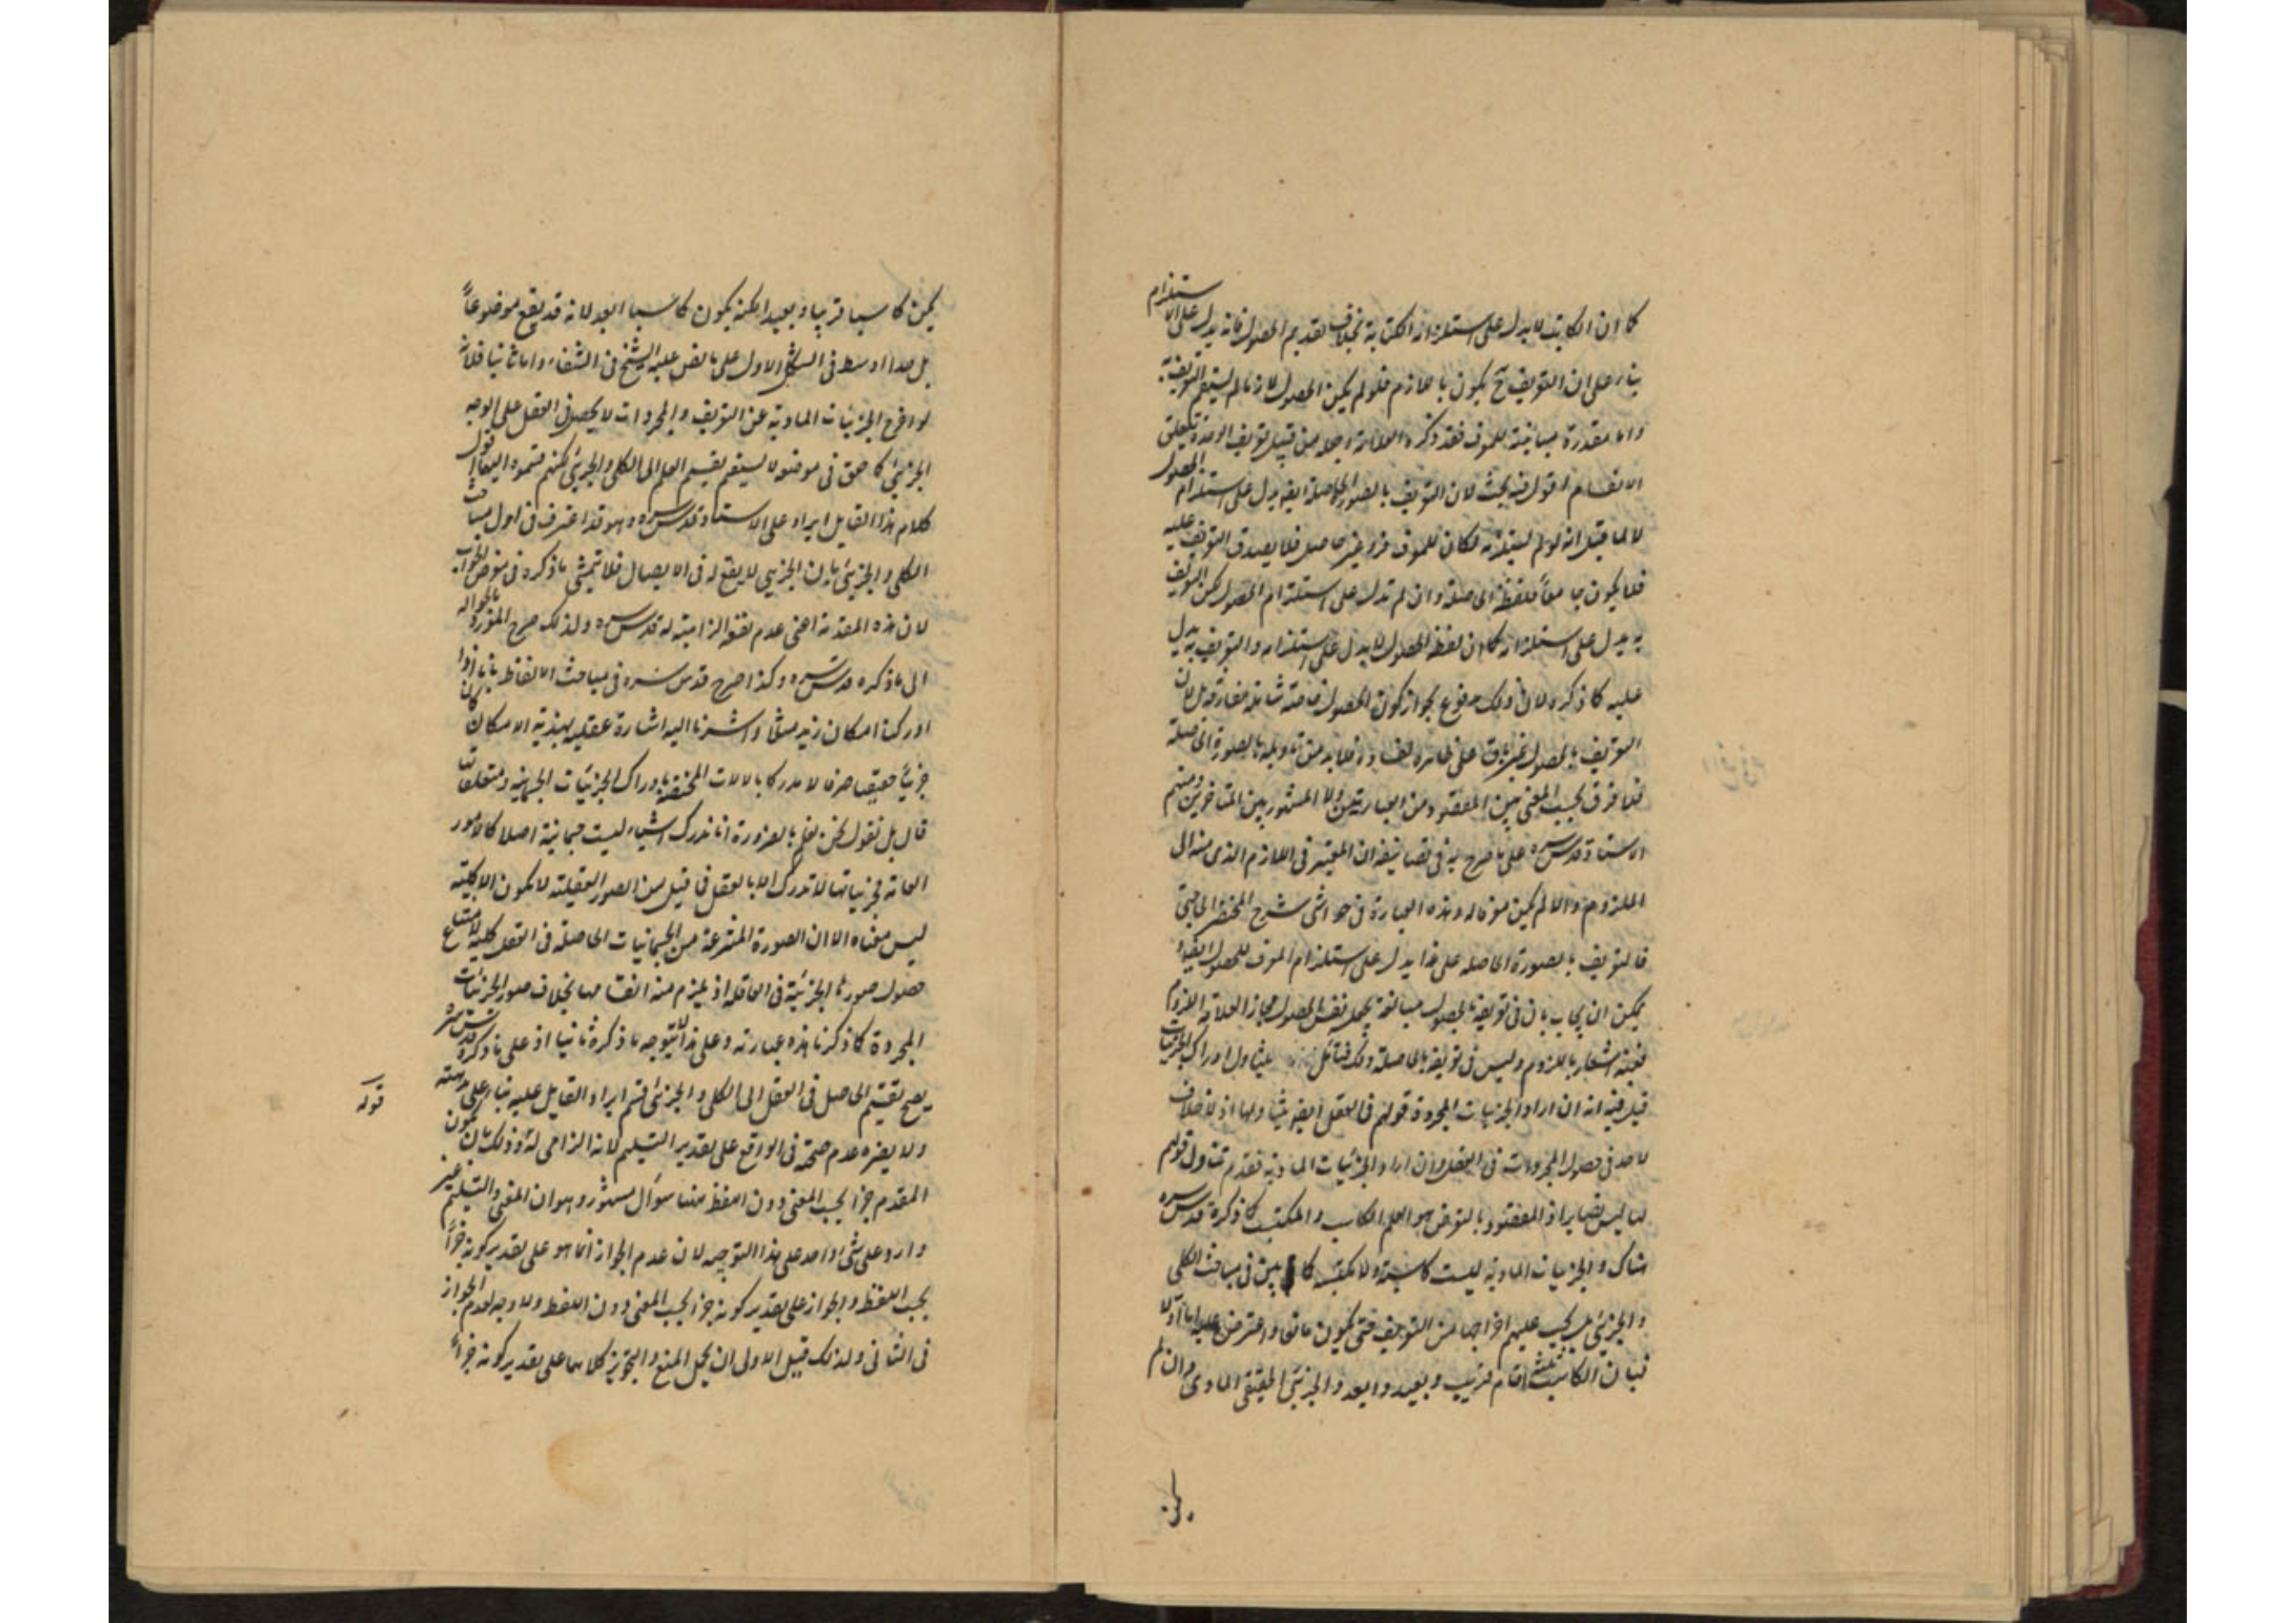 كما ان الكاتب لا يدل على استلزامه الكتابة بخلاف تقديم الحصول فانه يدل على الاستلزام
بناء على ان التعريف ح يكون باللازم فلو لم يكن الحصول لازما لم يستقم التعريف به
واما مقدرة مباينة للمعرف فقد ذكره العلامة
الانقسام اقول فيه بحث لان التعريف بالصورة الحاصلة ايضا يدل على استلزام الحصول
لا لما قيل انه لو لم يستلزمه لكان للمعرف فرد غير حاصل فلا يصدق التعريف عليه
فلا يكون جامعاً فلفظة الحاصلة وان لم تدل على استلزام الحصول لكن التعريف
به يدل على استلزامه كما ان لفظ الحصول لا يدل على استلزامه والتعريف به يدل
عليه كما ذكره لان ذلك مدفوع بجواز كون الحصول خاصة شاملة مفارقة بل لان
التعريف بالحصول غير باق على ظاهره لفساده فلا بد من تاويله بالصورة الحاصلة
فلا فرق بحسب المعنى بين المقصود من العبارتين ولا المشهور بين المتاخرين ومنهم
الاستاد قدس سره على ما صرح به في تصانيفه ان المعتبر في اللازم الذي منه الى
الملزوم والا لم يكن معرفا له وهذه العبارة في حواشي شرح المختصر الحاجبي
فالتعريف بالصورة الحاصلة على هذا يدل على استلزام المعرف للحصول ايضا
يمكن ان يجاب بان في تعريفه بالحصول مبالغة بجعل نفس الحصول مجازا لعلاقة اللزوم
ففيه اشعار باللزوم وليس في تعريفه بالحاصلة ذلك فتامل ليتناول ادراك الجزئيات
قيل فيه انه ان اراد الجزئيات المجردة فقولهم في العقل ايضا يتناولها اذ لا خلاف
لاحد في حصول المجردات في العقل وان اراد الجزئيات المادية فعدم تناول قولهم
لها ليس بضاير اذ المقصود بالتعرض هو العلم الكاسب والمكتسب كما ذكره قدس سره
هناك والجزئيات المادية ليست كاسبة ولا مكتسبة كما بين في مباحث الكلي
والجزئي بل يجب عليهم اخراجها من التعريف حتى يكون مانعا واعترض عليه اما اولا
فبان الكاسب ثلثة اقسام قريب وبعيد وابعد والجزئي الحقيقي المادي وان لم
يكن
يكن كاسبا قريبا وبعيدا لكنه يكون كاسبا ابعد لانه قد يقع موضوعاً
بل حدا اوسط في الشكل الاول على ما نص عليه الشيخ في الشفاء واما ثانيا فلانه
لو اخرج الجزئيات المادية عن التعريف والمجردات لا يحصل في العقل على الوجه
الجزئي كما حقق في موضعه لا يستقيم تقسيم العلم الى الكلي والجزئي لكنهم قسموه اليهما اقول
كلام هذا القايل ايراد على الاستاد قدس سره وهو قد اعترف في اول مباحث
الكلي والجزئي بان الجزئي لا يقع له في الايصال فلا يتمشى ما ذكره في معرض الجواب
لان هذه المقدمة اعني عدم نفعه الزامية له قدس سره ولذلك صرح المورد بالحوالة
الى ما ذكره قدس سره وكذا صرح قدس سره في مباحث الالفاظ بانا اذا
ادركنا امكان زيد مثلا واشرنا اليه اشارة عقلية بهذية الامكان كان
جزئياً حقيقيا صرفا لا مدركا بالالات المختصة بادراك الجزئيات الجسمية ومتعلقاتها
قال بل نقول نحن نعلم بالضرورة انا ندرك اشياء ليست جسمانية اصلا كالامور
العامة فجزئياتها لا تدرك الا بالعقل فما قيل من الصور العقلية لا تكون الا كلية
ليس معناه الا ان الصورة المنتزعة من الجسمانيات الحاصلة في العقل كلية لامتناع
حصول صورها الجزئية في العاقلة اذ يلزم منه انقسامها بخلاف صور الجزئيات
المجردة كما ذكرنا هذه عبارته وعلى هذا لا يتوجه ما ذكره ثانيا اذ على ما ذكره قدس سره
يصح تقسيم الحاصل في العقل الى الكلي والجزئي فتم ايراد القايل عليه بناء على مذهبه
ولا يضره عدم صحته في الواقع على تقدير التسليم لانه الزامي له وذلك بان يكون
المقدم جزا بحسب المعنى دون اللفظ ههنا سؤال مشهور وهو ان المنع والتسليم غير
وارد على شيء واحد على هذا التوجيه لان عدم الجواز انما هو على تقدير كونه جزاً
بحسب اللفظ والجواز على تقدير كونه جزا بحسب المعنى دون اللفظ ولا وجه لعدم الجواز
في الثاني ولذلك قيل الاولى ان يحمل المنع والتجويز كلاهما على تقدير كونه جزاً
قوله